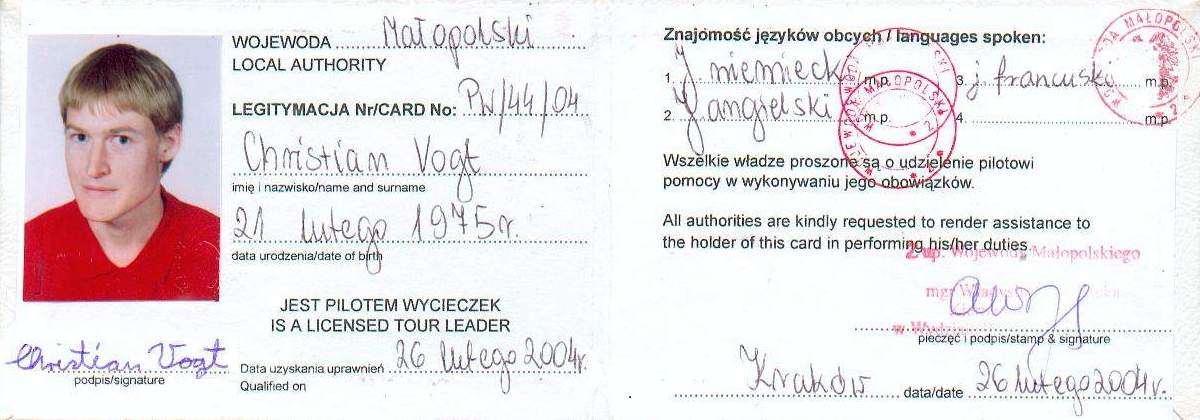 WOJEWODA Małopolski
LOCAL AUTHORITY
LEGITYMACJA Nr/CARD No: PW/44/04
Christian Vogt
imię i nazwisko/name and surname
21 lutego 1975r.
data urodzenia/date of birth
JEST PILOTEM WYCIECZEK
IS A LICENSED TOUR LEADER
Christian Vogt
podpis/signature
Data uzyskania uprawnień 26 lutego 2004r.
Qualified on
Znajomość języków obcych / languages spoken:
1. J niemiecki m.p. 3. j francuski m.p.
2. J angielski m.p. 4. m.p.
MAŁOPOLSKI
Wszelkie władze proszone są o udzielenie pilotowi
pomocy w wykonywaniu jego obowiązków.
All authorities are kindly requested to render assistance to
the holder of this card in performing his/her duties.
z up. Wojewody Małopolskiego
mgr
pieczęć i podpis/stamp & signature
Kraków data/date 26 lutego 2004r.